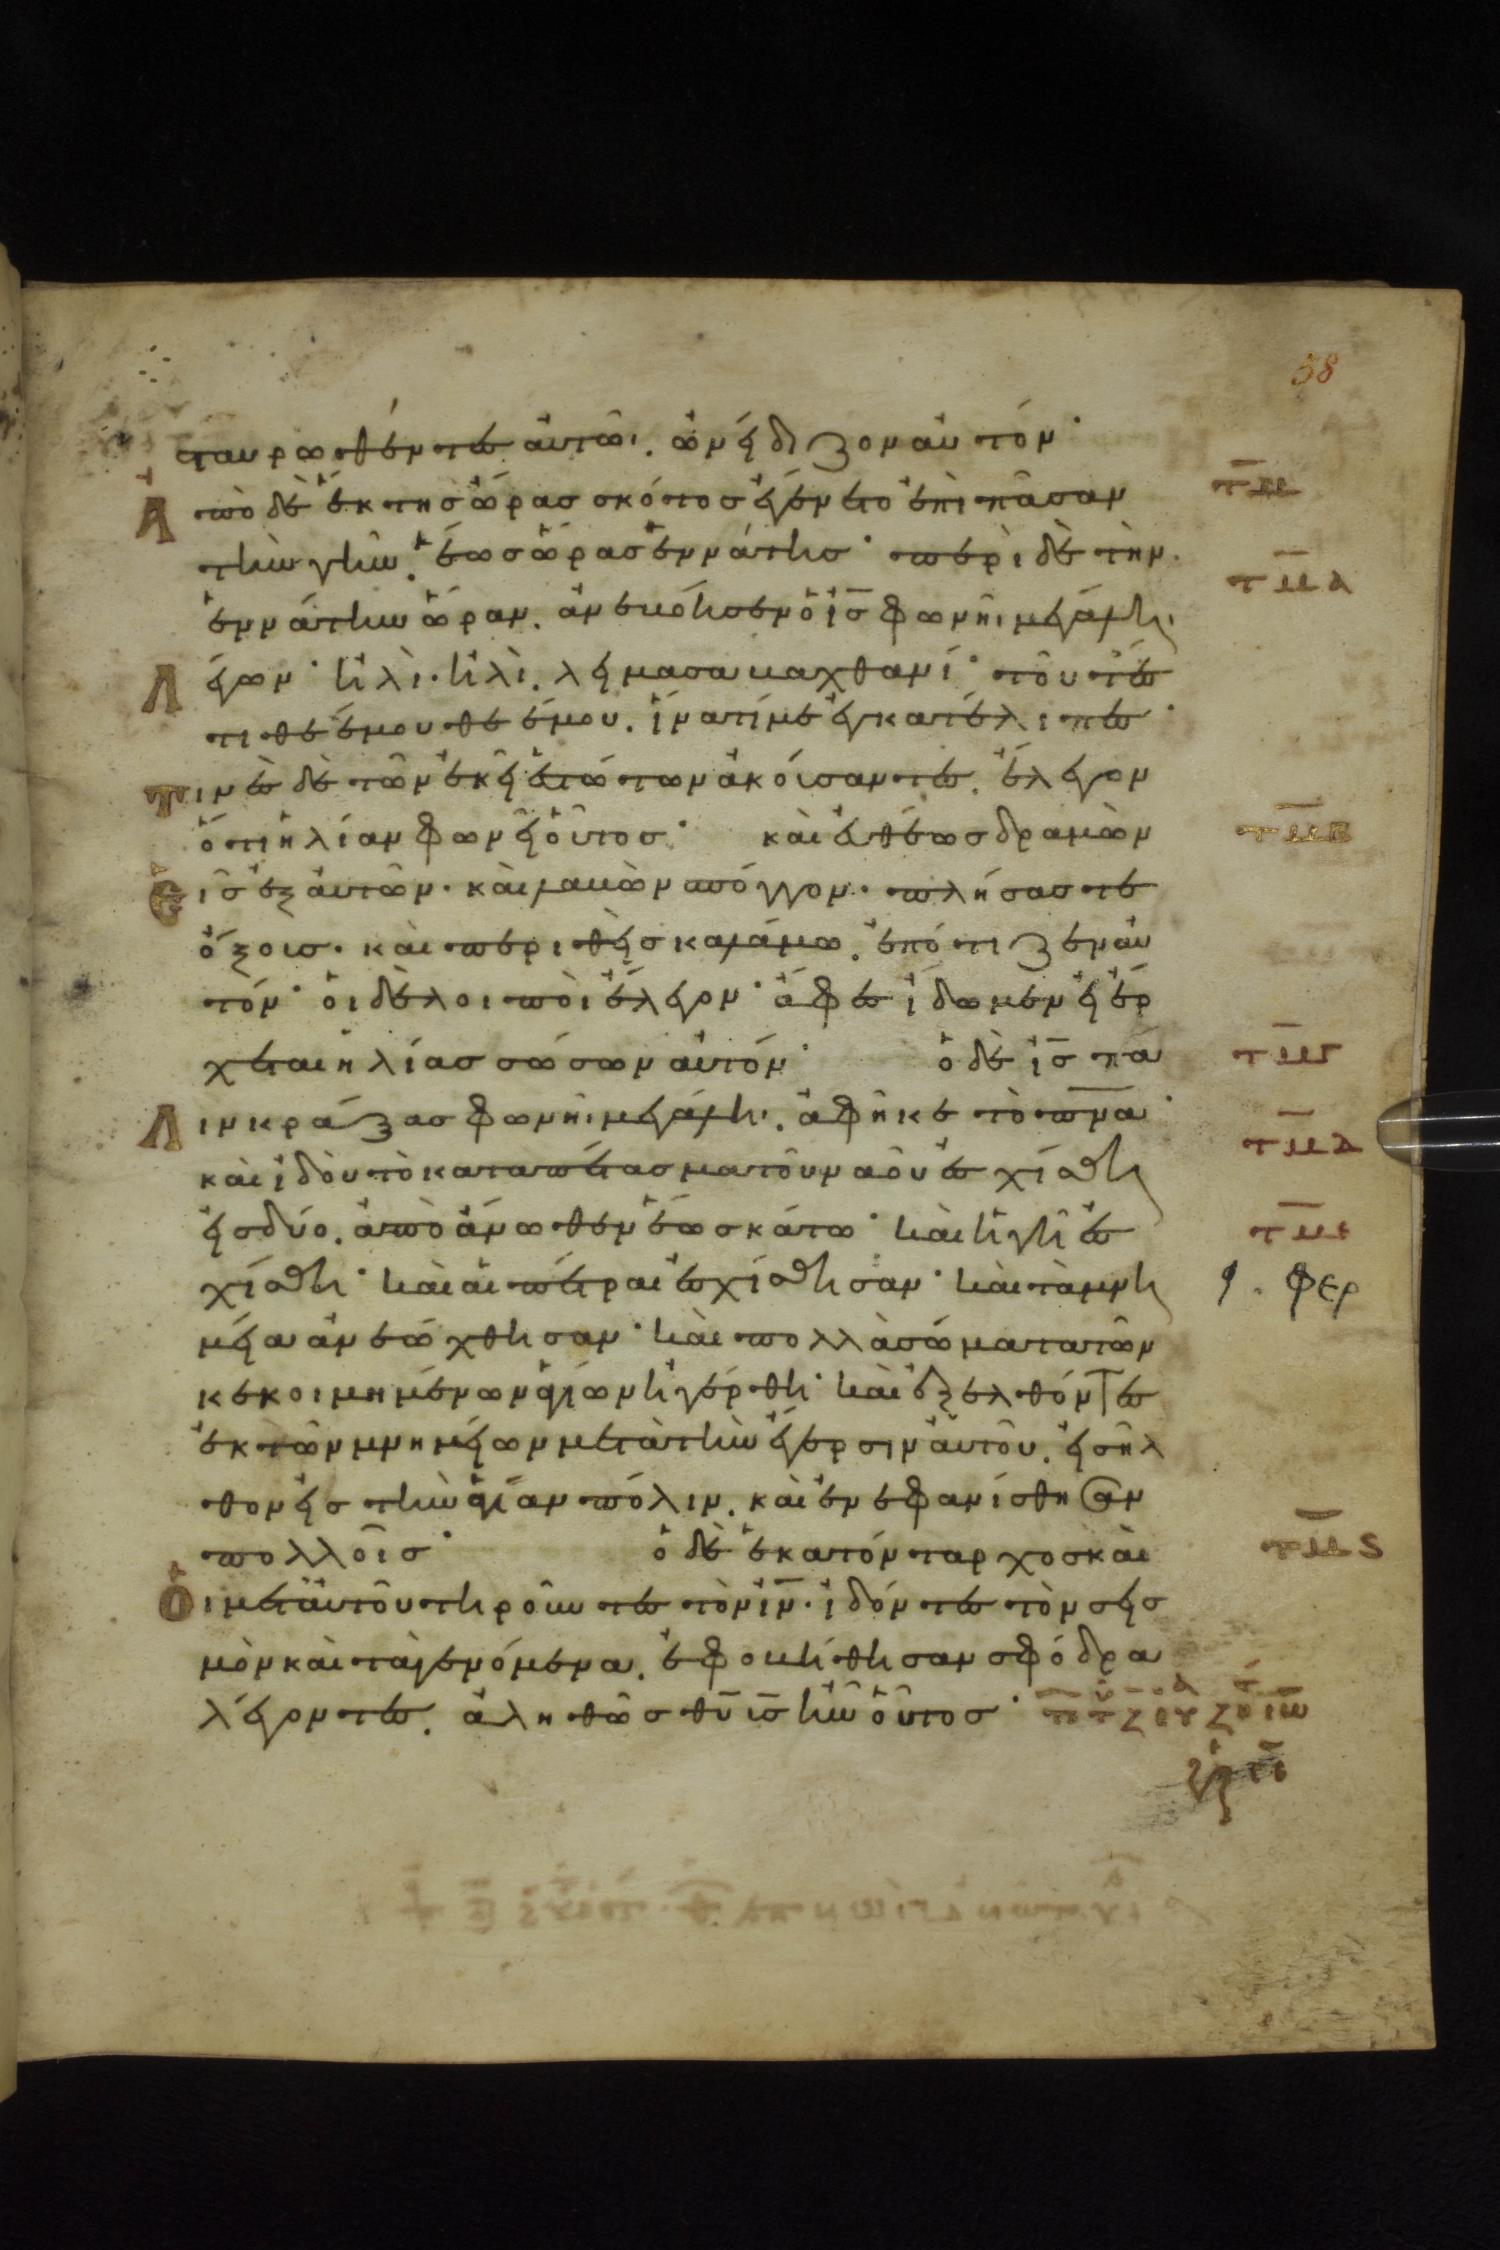 58
σταυρωθέντες αὐτῶι. ὠνείδιζον αὐτόν·
Ἀπὸ δὲ ἕκτης ὥρας σκότος ἐγένετο ἐπὶ πᾶσαν τμ
τὴν γῆν. ἕως ὥρας ἐννάτης· περὶ δὲ τὴν τμα
ἐννάτην ὥραν. ἀνεβόησεν ὁ ις φωνῆι μεγάλη
Λέγων· ἠλὶ· ἠλὶ. λειμασαβαχθανί· τοῦτ' ἔς
τι θεέ μου θεέ μου. ἵνα τί με ἐγκατέλιπες·
Τινὲς δὲ τῶν ἐκεῖ ἑστώτων ἀκούσαντες. ἔλεγον
ὅτι ἠλίαν φωνεῖ οὗτος· καὶ εὐθέως δραμὼν τμβ
Εἷς ἐξ αὐτῶν· καὶ λαβὼν σπόγγον· πλήσας τε
ὄξους· καὶ περιθεὶς καλάμω. ἐπότιζεν αὐ
τόν· οἱ δὲ λοιποὶ ἔλεγον· ἄφες ἴδωμεν εἰ ἔρ
χεται ἠλίας σώσων αὐτόν· ὁ δὲ ις πά τμγ
Λιν κράξας φωνῆι μεγάλη. ἀφῆκε τὸ πνα· τμδ
καὶ ἰδοὺ τὸ καταπέτασμα τοῦ ναοῦ ἐσχίσθη
εἰς δύο. ἀπὸ ἄνωθεν ἕως κάτω· καὶ ἡ γῆ ἐσ τμε
χίσθη· καὶ αἱ πέτραι ἐσχίσθησαν· καὶ τὰ μνη φερ
μεῖα ἀνεώχθησαν· καὶ πολλὰ σώματα τῶν
κεκοιμημένων ἁγίων ἠγέρθη· καὶ ἐξελθόντες
ἐκ τῶν μνημείων μετὰ τὴν ἔγερσιν αὐτοῦ. εἰσῆλ
θον εἰς τὴν ἁγίαν πόλιν. καὶ ἐνεφανίσθησαν
πολλοῖς· ὁ δὲ ἑκατόνταρχος καὶ τμς
Οἱ μετ' αὐτοῦ τηροῦντες τὸν ιν· ἰδόντες τὸν σεισ
μὸν καὶ τὰ γενόμενα. ἐφοβήθησαν σφόδρα
λέγοντες. ἀληθῶς θυ υς ἦν οὗτος·